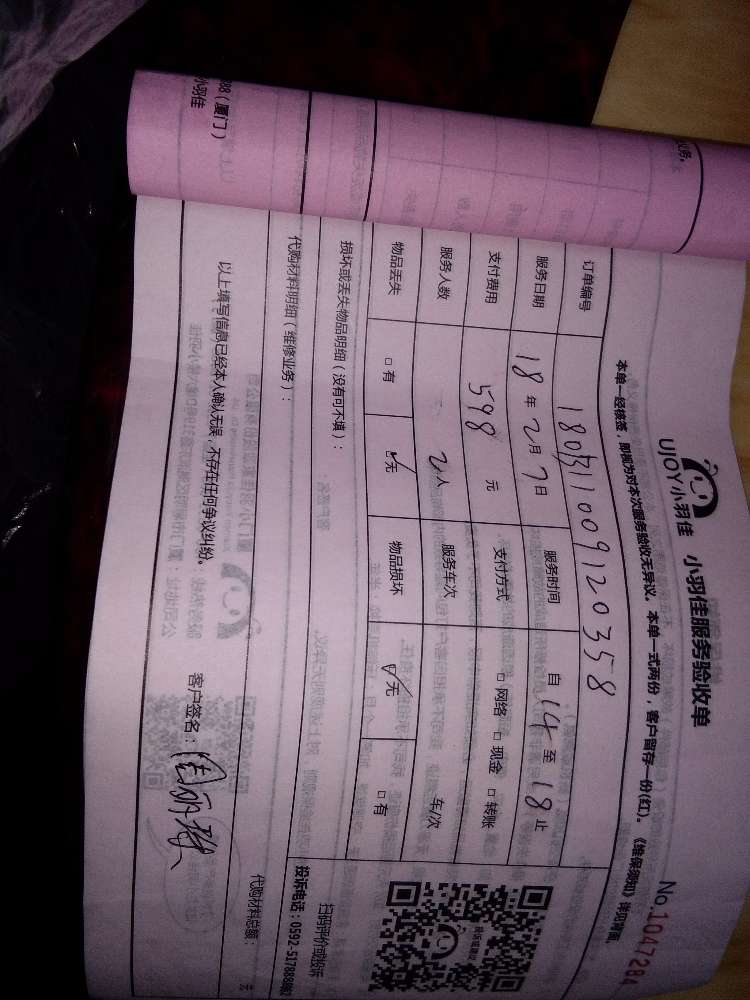 UJOY小羽佳 小羽佳服务验收单
No.1047284
本单一经核签，即视为对本次服务验收无异议。本单一式两份，客户留存一份(红)。《维保须知》详见背面。
订单编号 1801311009120358
服务日期 18年2月7日 服务时间 自14至18止
支付费用 598元 支付方式 □网络 □现金 □转账
服务人数 2人 服务车次 车/次
物品丢失 □有 ☑无 物品损坏 ☑无 □有
损坏或丢失物品明细（没有可不填）：
代购材料明细（维修业务）：
代购材料总额： 元
扫码评价或投诉
以上填写信息已经本人确认无误，不存在任何争议纠纷。 客户签名：
88（厦门）
小羽佳